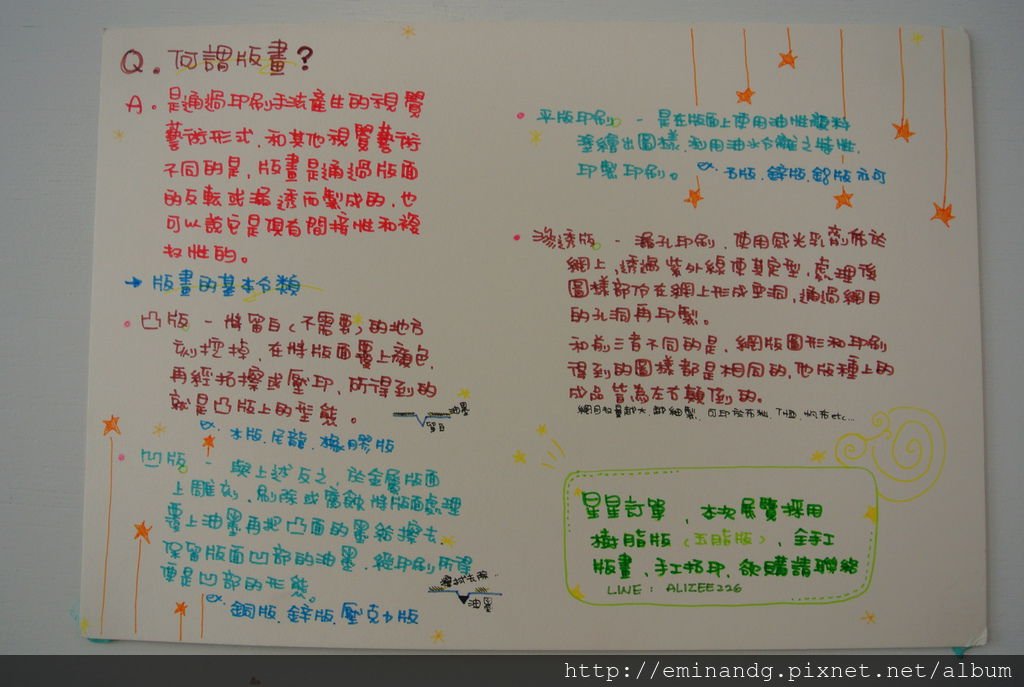 Q. 何謂版畫?
A. 是通過印刷手法產生的視覺
藝術形式. 和其他視覺藝術
不同的是, 版畫是通過版面
的反転或漏透而製成的, 也
可以說它是俱有間接性和複
數性的。
→ 版畫的基本分類
• 凸版 - 將留白(不需要)的地方
刻挖掉, 在將版面覆上顏色.
再經拓擦或壓印, 所得到的
就是凸版上的型態。
油墨
留白
ex. 木版.尼龍.橡膠版
• 凹版 - 與上述反之, 於金屬版面
上雕刻、刷除或腐蝕將版面處理
覆上油墨再把凸面的墨給擦去.
保留版面凹部的油墨. 經印刷所得
便是凹部的形態。
擦拭去除.
油墨
ex. 銅版.鋅版.壓克力版
• 平版印刷 - 是在版面上使用油性顏料
塗繪出圖樣. 利用油水分離之特性.
印製印刷。 ex. 石版.鋅版.鋁版亦可
• 滲透版 - 漏孔印刷. 使用感光乳劑佈於
網上, 透過紫外線使其定型. 處理後
圖樣部份在網上形成空洞, 通過網目
的孔洞再印製。
和前三者不同的是, 網版圖形和印刷
得到的圖樣都是相同的, 他版種上的
成品皆為左右顛倒的。
網目數量越大.越細製. 可印於布料. T恤. 帆布etc...
星星訂單、本次展覽採用
樹脂版(五脂版)、全手工
版畫、手工拓印. 欲購請聯絡
LINE: ALIZEE226
http://eminandg.pixnet.net/album